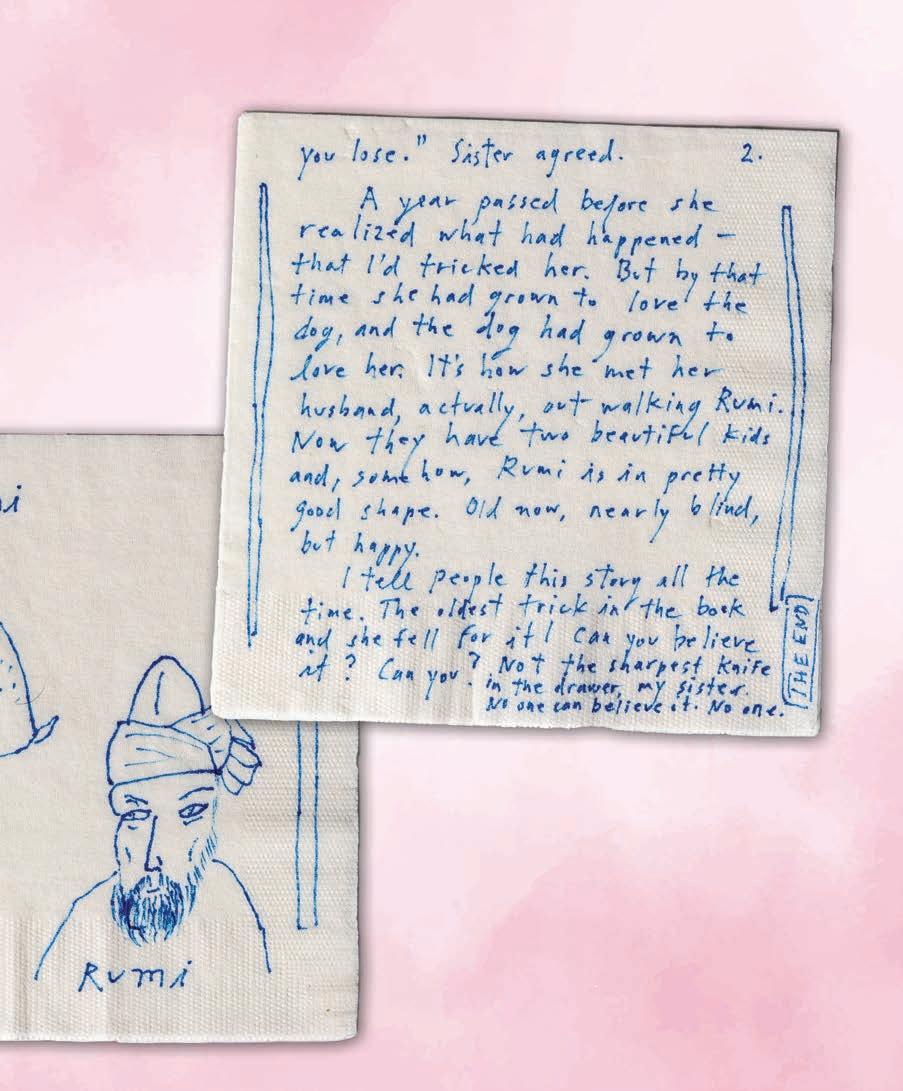 you lose." Sister agreed. 2.
A year passed before she
realized what had happened –
that I'd tricked her. But by that
time she had grown to love the
dog, and the dog had grown to
love her. It's how she met her
husband, actually, out walking Rumi.
Now they have two beautiful kids
and, somehow, Rumi is in pretty
good shape. Old now, nearly blind,
but happy.
I tell people this story all the
time. The oldest trick in the book
and she fell for it! Can you believe
it? Can you? Not the sharpest knife
in the drawer, my sister.
No one can believe it. No one.
THE END
Rumi